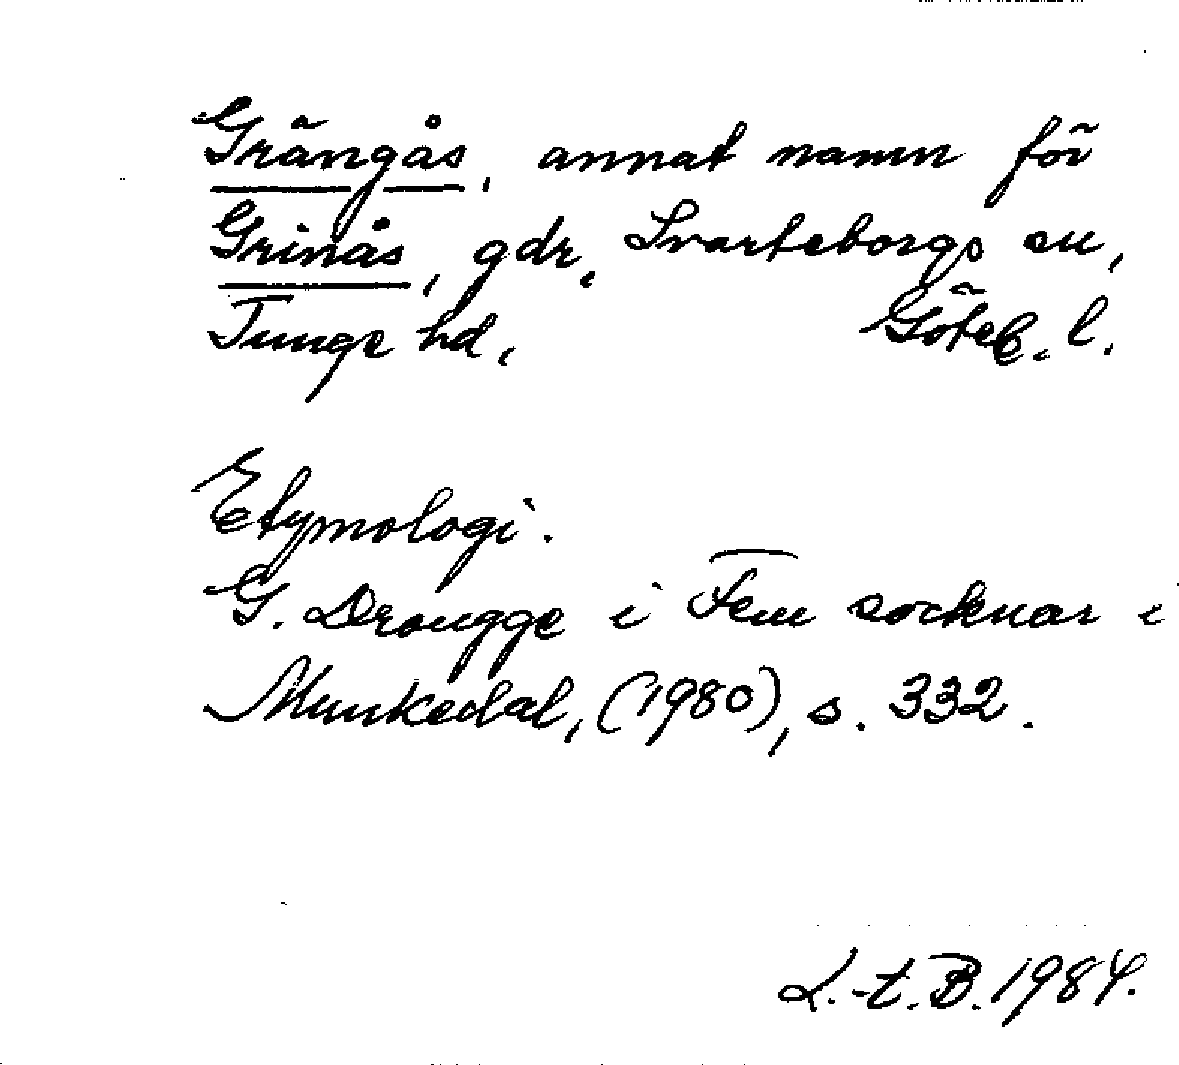 Grängås, annat namn för
Grinås, gdr, Svarteborgs sn,
Tunge hd, Göteb. l.
Etymologi.
G. Drougge i Fem socknar i
Munkedal, (1980), s. 332.
L.-t. B. 1984.